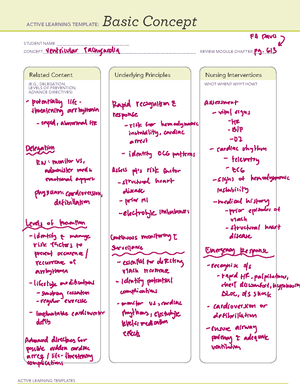 ACTIVE LEARNING TEMPLATE: Basic Concept
STUDENT NAME
CONCEPT Ventricular Tachycardia
REVIEW MODULE CHAPTER pg. 613
Related Content
(E.G., DELEGATION,
LEVELS OF PREVENTION,
ADVANCE DIRECTIVES)
- potentially life-
threatening arrhythmia
- rapid, abnormal HR
Delegation
RN: monitor VS,
administer meds
emotional support
physician: cardioversion,
defibrillation
Levels of Prevention
- identify & manage
risk factors to
prevent occurrence /
recurrence of
arrhythmia
- lifestyle modifications
- smoking cessation
- regular exercise
- implantable cardioverter
Advanced directives for
possible sudden cardiac
arrest / life-threatening
complications
Underlying Principles
Rapid recognition &
response
- risk for hemodynamic
instability, cardiac
arrest
- identify ECG patterns
Assess pt's risk factor
- structural heart
disease
- prior MI
- electrolyte imbalances
Continuous monitoring &
Surveillance
- essential for detecting
vtach recurrence
- identify potential
complications
- monitor VS, cardiac
rhythms, electrolyte
levels, medication
effects
Nursing Interventions
WHO? WHEN? WHY? HOW?
Assessment
- vital signs
- HR
- BP
- O2
- cardiac rhythm
- telemetry
- ECG
- signs of hemodynamic
instability
- medical history
- prior episodes of
vtach
- structural heart
disease
Emergency Response
- recognize s/s
- rapid HR, palpitations,
chest discomfort, hypotension
LOC, s/s shock
- cardioversion or
defibrillation
- ensure airway
patency & adequate
ventilation
ACTIVE LEARNING TEMPLATES